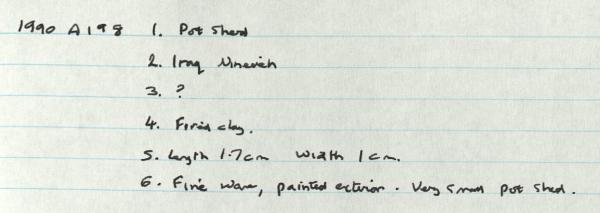 1990 A198 1. Pot Sherd
2. Iraq Nineveh
3. ?
4. Fired clay.
5. Length 1.7cm Width 1cm.
6. Fine ware, painted exterior. Very small pot sherd.